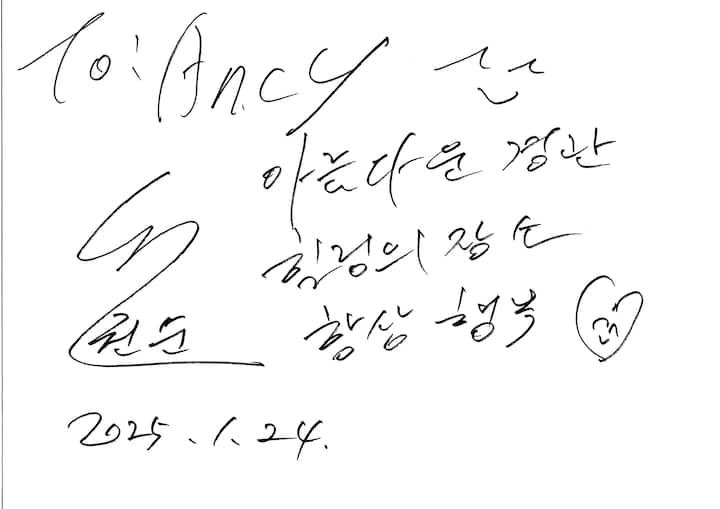 To: Ancy
아름다운 경관
힐링의 장소
권순
항상 행복
2025.1.24.